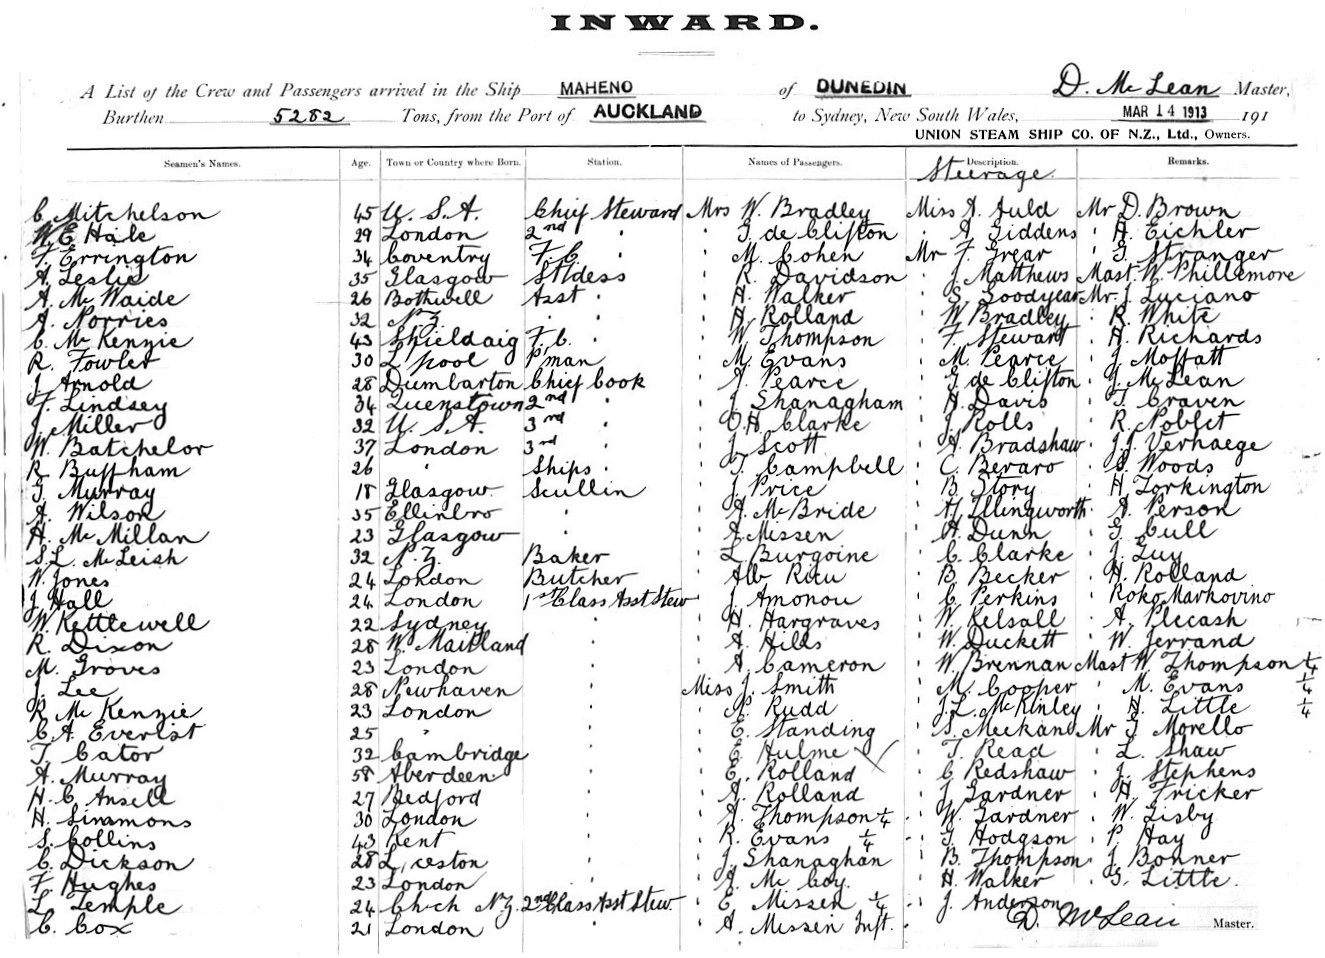 INWARD.
A List of the Crew and Passengers arrived in the Ship MAHENO of DUNEDIN D. McLean Master,
Burthen 5282 Tons, from the Port of AUCKLAND to Sydney, New South Wales, MAR 14 1913 191
UNION STEAM SHIP CO. OF N.Z., Ltd., Owners.
Seamen's Names. Age. Town or Country where Born. Station. Names of Passengers. Description. Remarks.
Steerage.
C. Mitchelson 45 U. S. A. Chief Steward Mrs W. Bradley Miss A. Auld Mr D. Brown
W. E. Hale 29 London 2nd " " G. de Clifton " A. Giddens " H. Eichler
F. Errington 34 Coventry F. C. " M. Cohen Mr F. Grear " G. Stranger
A. Leslie 35 Glasgow Stdess " R. Davidson " J. Matthews Mast. W. Phillemore
A. McWaide 26 Bothwell Asst " " H. Walker " S. Goodyear Mr. J. Luciano
A. Norries 32 N.Z. " " " H. Rolland " W. Bradley " R. White
C. McKenzie 43 Shieldaig F. C. " " W. Thompson " F. Stewart " H. Richards
R. Fowler 30 L'pool P'man " M. Evans " M. Pearce " J. Moffatt
J. Arnold 28 Dumbarton Chief Cook " J. Pearce " G. de Clifton " J. McLean
J. Lindsey 34 Queenstown 2nd " " J. Shanagham " H. Davis " T. Craven
J. Miller 32 U. S. A. 3rd " " O. H. Clarke " J. Rolls " R. Noblet
W. Batchelor 37 London 3rd " " J. Scott " A. Bradshaw " J. J. Verhaege
R. Buffham 26 " Ships " " T. Campbell " C. Beraro " G. Woods
G. Murray 18 Glasgow Scullin " J. Price " B. Story " H. Torkington
A. Wilson 35 " " A. McBride " H. Illingworth " A. Person
H. McMillan 23 Glasgow " " A. Missen " H. Dunn " G. Cull
S. L. McLeish 32 N.Z. Baker " L. Burgoine " C. Clarke " J. Guy
W. Jones 24 London Butcher " " B. Becker " H. Rolland
J. Hall 24 London 1st Class Asst Stew " J. Amonou " C. Perkins " Roko Markovino
W. Kettlewell 22 Sydney " " H. Hargraves " W. Kelsall " A. Plecash
R. Dixon 28 W. Maitland " " A. Hills " W. Duckett " W. Jerrand
M. Groves 23 London " " A. Cameron " W. Brennan Mast W. Thompson ¼
J. Lee 28 Newhaven " Miss J. Smith " M. Cooper " M. Evans ¼
R. McKenzie 23 London " " P. Rudd " J. L. McKinley " H. Little ¼
C. A. Everest 25 " " " E. Standing " S. Meekand Mr J. Morello
T. Cator 32 Cambridge " " E. Hulme " T. Read " L. Shaw
A. Murray 58 Aberdeen " " E. Rolland " C. Redshaw " J. Stephens
H. C. Ansell 27 Bedford " " A. Rolland " J. Gardner " H. Fricker
H. Simmons 30 London " " J. Thompson ¼ " W. Gardner " W. Lisby
S. Collins 43 Kent " " R. Evans ¼ " G. Hodgson " P. Hay
C. Dickson 28 L'ceston " " J. Shanaghan " B. Thompson " J. Bonner
F. Hughes 23 London " " J. McCoy " H. Walker " G. Little
L. Temple 24 Ch'ch N.Z. 2nd Class Asst Stew. " E. Missen ¼ " J. Anderson
C. Cox 21 London " " A. Missen Inft.
D. McLean Master.